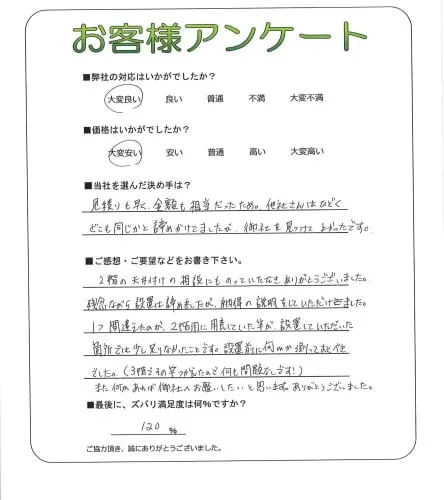 お客様アンケート
■弊社の対応はいかがでしたか?
大変良い 良い 普通 不満 大変不満
■価格はいかがでしたか?
大変安い 安い 普通 高い 大変高い
■当社を選んだ決め手は?
見積りも早く、金額も相当だったため。他社さんはひどく
どこも同じかと諦めかけてましたが、御社を見つけてよかったです。
■ご感想・ご要望などをお書き下さい。
2階の天井付けの相談にものっていただきありがとうございました。
残念ながら設置は諦めましたが、納得の説明をしていただけました。
1つ間違えたのが、2階用に用意していた竿が、設置していただいた
箇所では少し足りなかったことです。設置前に何cmか測っておくべき
でした。(3階での竿が使えたので何も問題なしです!)
また何かあれば御社へお願いしたいと思います。ありがとうございました。
■最後に、ズバリ満足度は何%ですか?
120 %
ご協力頂き、誠にありがとうございました。